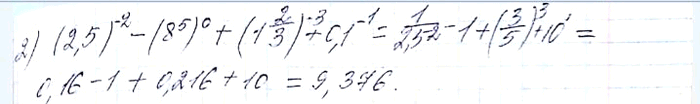 2) (2,5)^-2 - (8^5)^0 + (1 2/3)^-3 + 0,1^-1 = 1/2,5^2 - 1 + (3/5)^3 + 10^1 =
0,16 - 1 + 0,216 + 10 = 9,376.